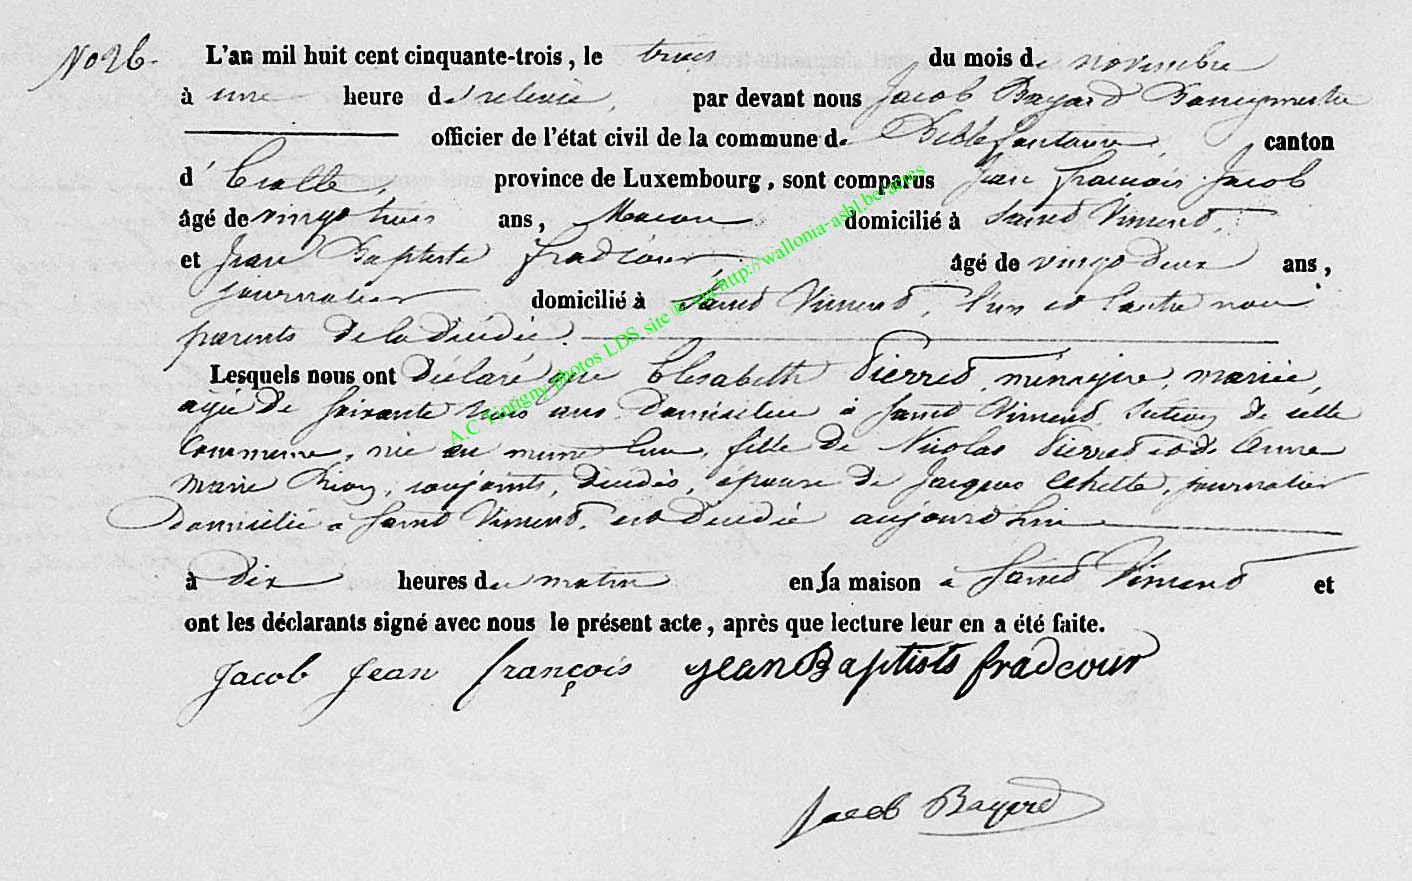 No 26. L'an mil huit cent cinquante-trois, le trois du mois de novembre
à une heure de relevée, par devant nous Jacob Bayard Bourgmestre
officier de l'état civil de la commune de Bellefontaine, canton
d'Etalle, province de Luxembourg, sont comparus Jean françois Jacob
âgé de vingt trois ans, Macon domicilié à Saint Vincent,
et Jean Baptiste fradcour âgé de vingt deux ans,
journalier domicilié à Saint Vincent, l'un et l'autre non
parents de la décédée.
Lesquels nous ont déclaré que Elisabeth Pierret ménagère, mariée,
agée de soixante trois ans domiciliée à Saint Vincent section de cette
commune, née au même lieu, fille de Nicolas Pierret et de Anne
Marie conjoints, décédés, épouse de Jacques journalier
domicilié à Saint Vincent, est décédée aujourd'hui
à dix heures du matin en sa maison à Saint Vincent et
ont les déclarants signé avec nous le présent acte, après que lecture leur en a été faite.
Jacob Jean françois Jean Baptiste fradcour
Jacob Bayard
A.C Tintigny photos LDS site © via http://wallonia-asbl.be/actes